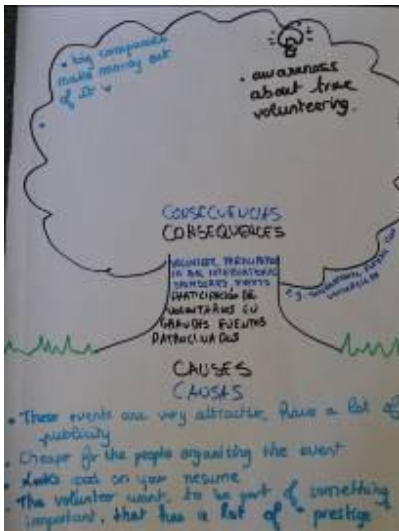 • big companies
make money out
of it
• awareness
about true
volunteering.
CONSECUENCIAS
CONSEQUENCES
VOLUNTEER PARTICIPATION
IN BIG INTERNATIONAL
SPONSORED EVENTS
PARTICIPACIÓN DE
VOLUNTARIOS EN
GRANDES EVENTOS
PATROCINADOS
e.g.
CAUSES
CAUSAS
• These events are very attractive, have a lot of
publicity
• Cheaper for the people organising the event
• Looks good on your resume
• The volunter want, to be part of something
important, that has a lot of "prestige"